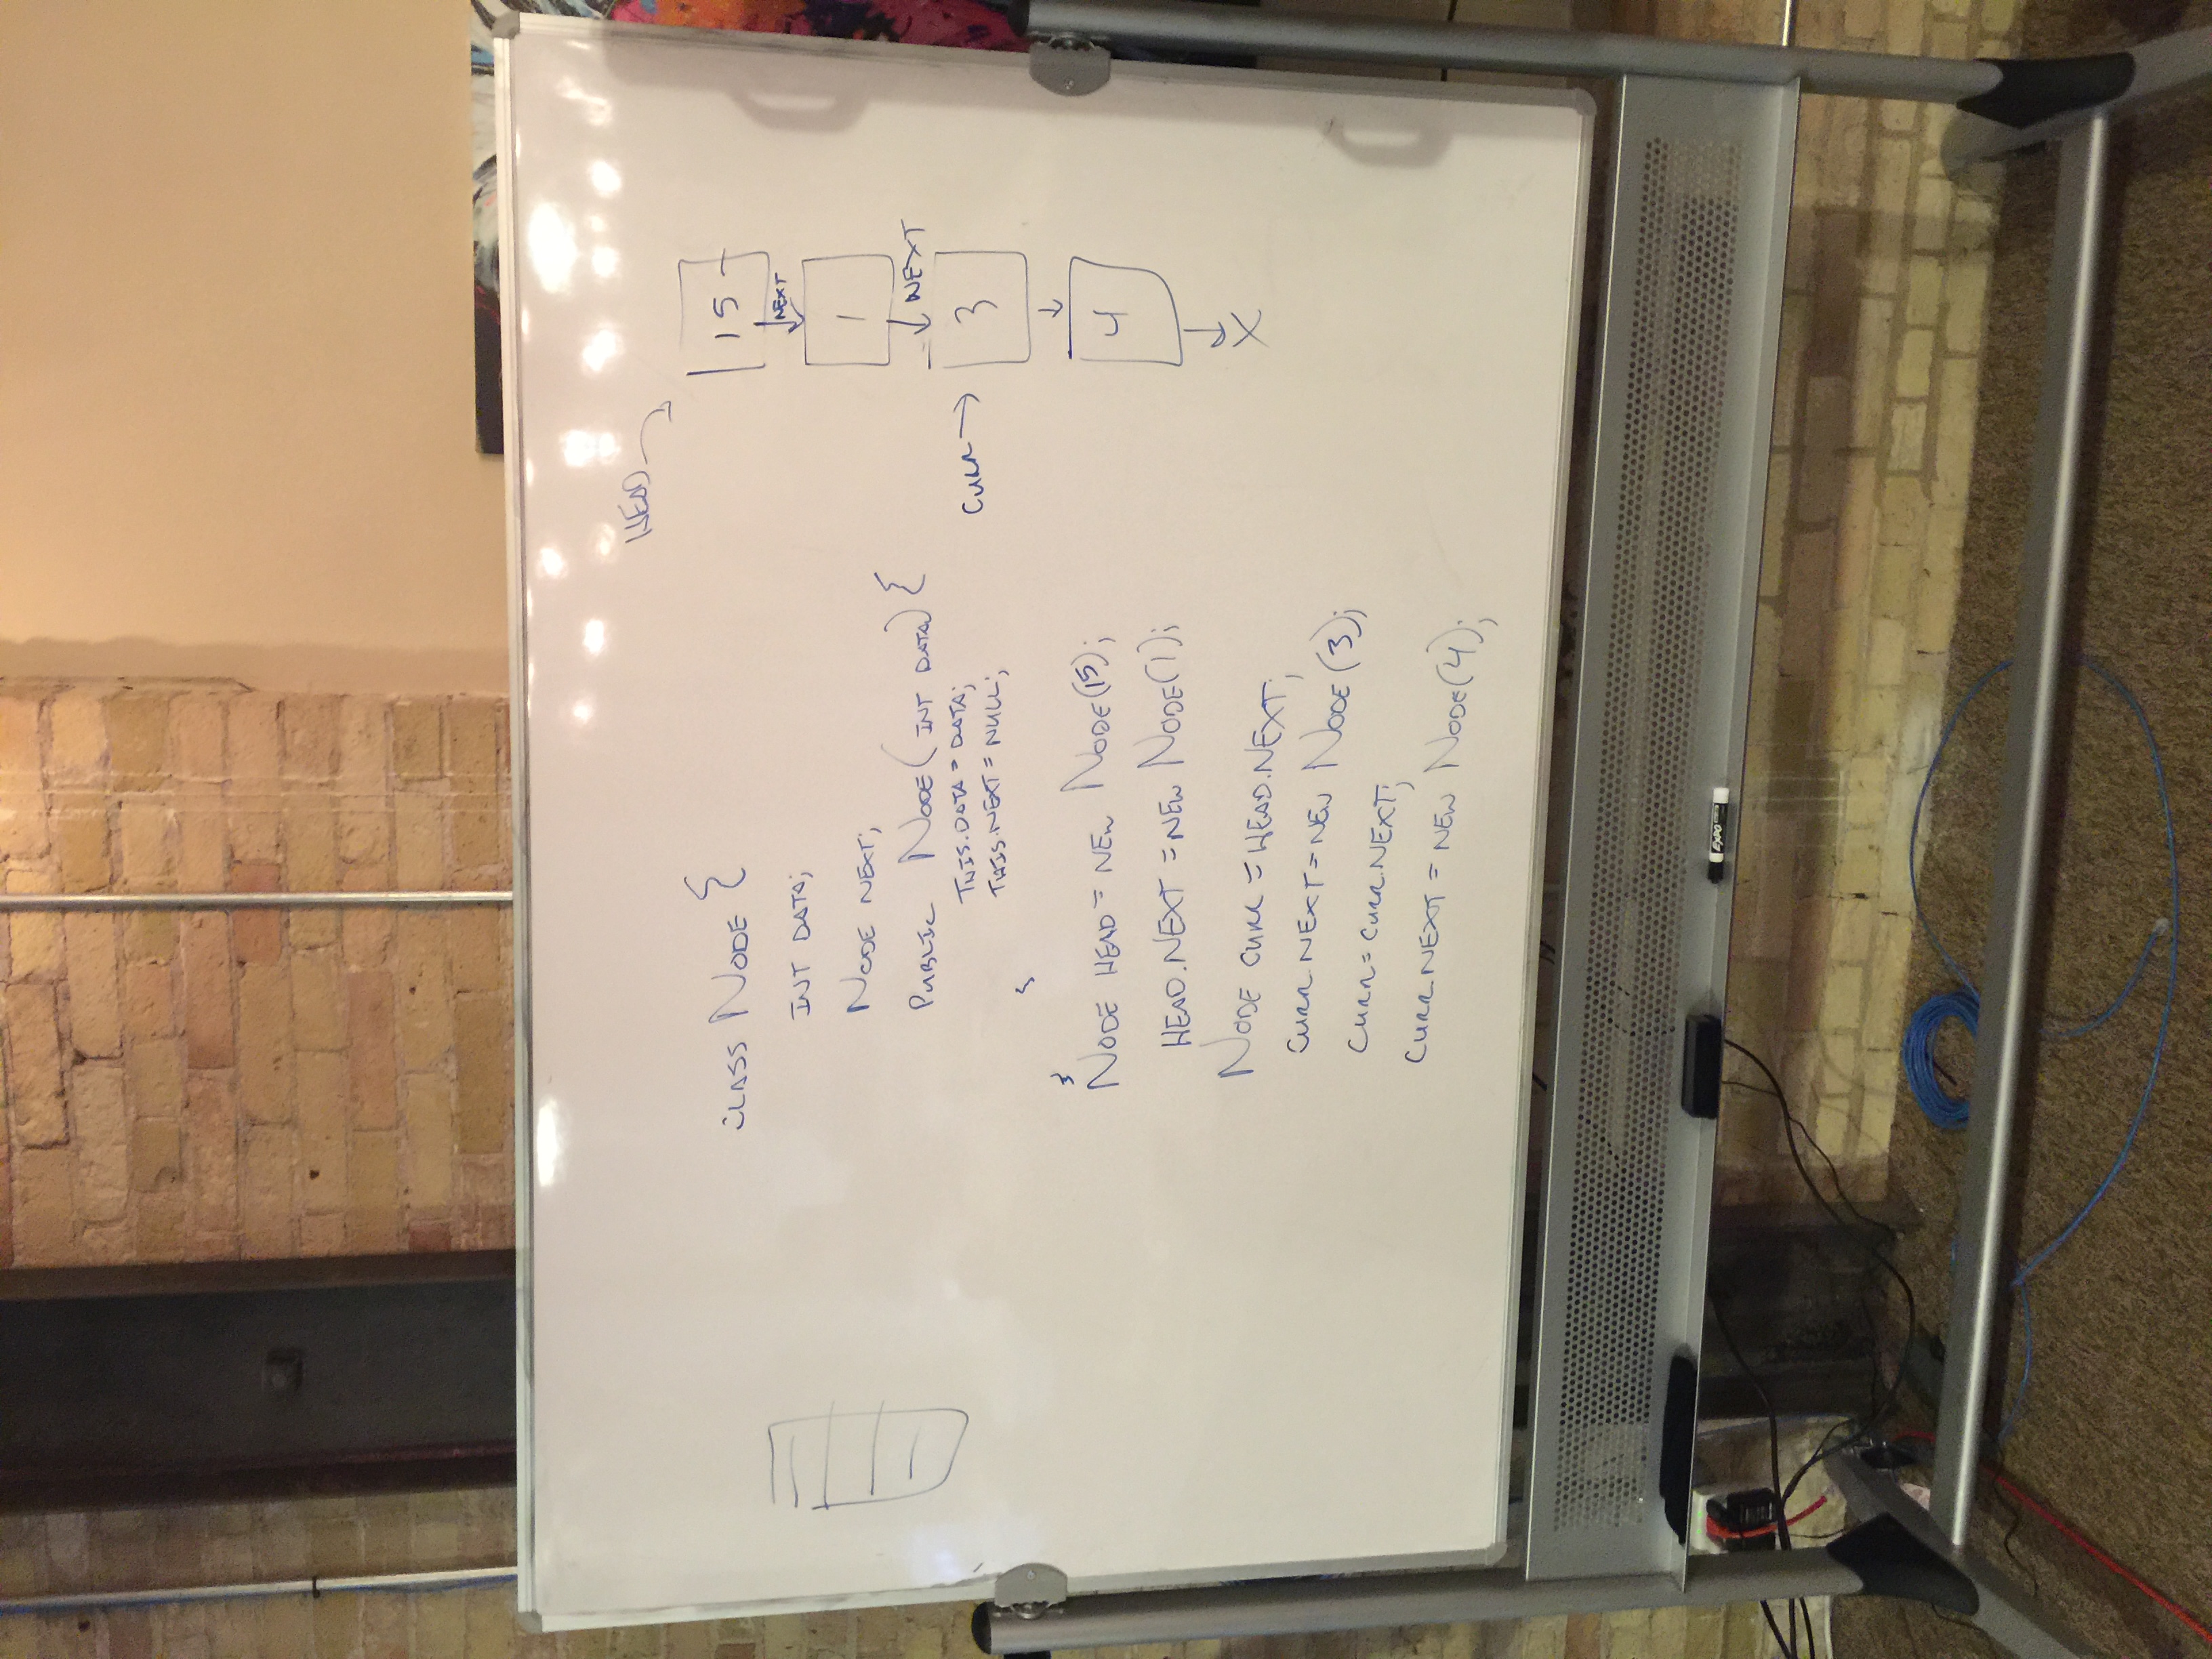 CLASS NODE {
INT DATA;
NODE NEXT;
PUBLIC NODE(INT DATA) {
THIS.DATA = DATA;
THIS.NEXT = NULL;
}
}
NODE HEAD = NEW NODE(15);
HEAD.NEXT = NEW NODE(1);
NODE CURR = HEAD.NEXT;
CURR.NEXT = NEW NODE(3);
CURR = CURR.NEXT;
CURR.NEXT = NEW NODE(4);
HEAD
15
NEXT
1
NEXT
CURR → 3
4
X
EXPO